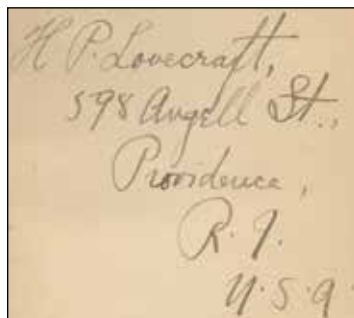 H P. Lovecraft,
598 Angell St.,
Providence,
R. I.
U. S. A.